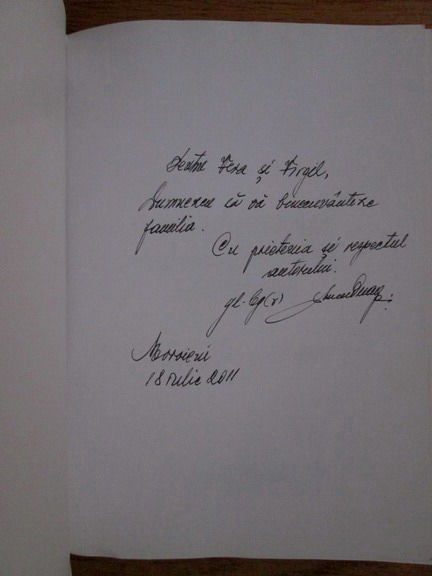 Pentru Vera și Virgil,
Dumnezeu să vă binecuvânteze
familia.
Cu prietenia și respectul
autorului.
gl. Bg(r)
Moroieni
18 iulie 2011